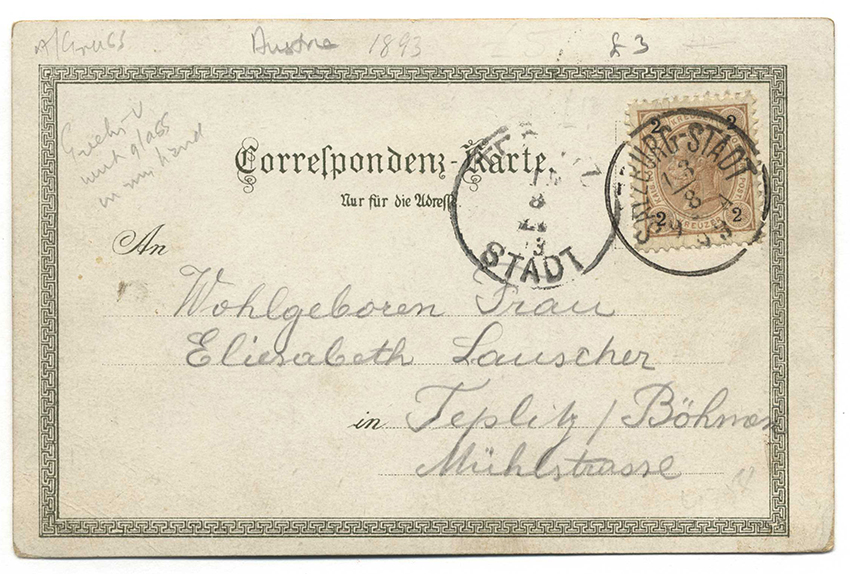 Austria 1893 £3
with glass
in my hand
Correspondenz-Karte.
Nur für die Adresse
An
Wohlgeboren Frau
Eliesabeth Lauscher
in Teplitz / Böhmen
Mühlstrasse
2 2
2 2
KREUZER
SALZBURG-STADT
13/8
STADT